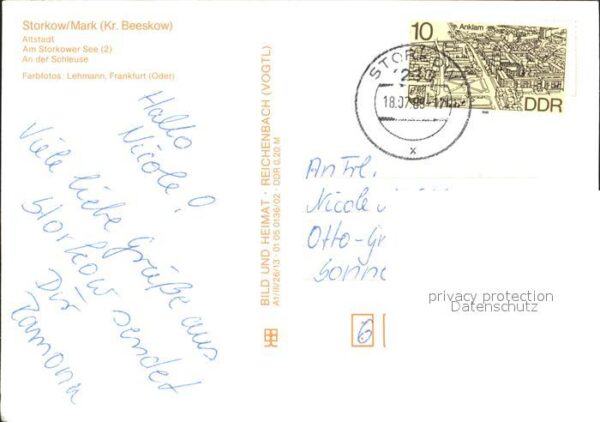 Storkow/Mark (Kr. Beeskow)
Altstadt
Am Storkower See (2)
An der Schleuse
Farbfotos: Lehmann, Frankfurt (Oder)
Hallo
Nicole!
Viele liebe Grüße aus
Storkow sendet
Dir
Ramona
BILD UND HEIMAT · REICHENBACH (VOGTL)
A1/III/26/13 · 01 05 0136/02 · DDR 0,20 M
10
Anklam
DDR
STORKOW
18.07.
x
An Frl.
Nicole
Otto-Gr
Sonne
6
privacy protection
Datenschutz